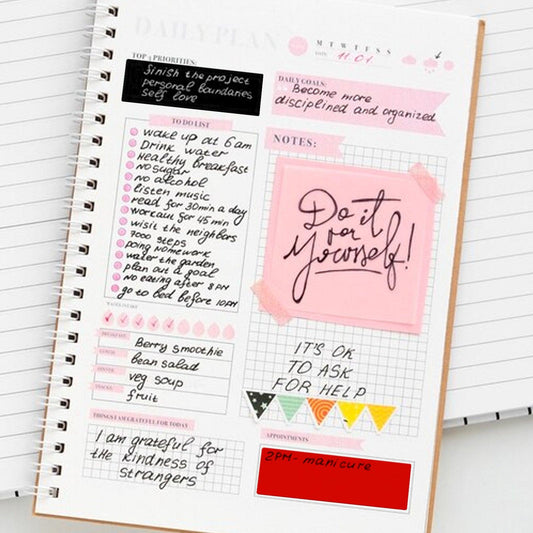 DAILY PLAN
M T W T F S S
DATE: 11.01
TOP 3 PRIORITIES:
finish the project
personal boundaries
self love
DAILY GOALS:
Become more
disciplined and organized
TO DO LIST
wake up at 6 am
Drink water
Healthy breakfast
No sugar
No alcohol
listen music
read for 30min a day
workout for 45 min
wisit the neighbors
7000 steps
doing homework
water the garden
plan out a goal
No eating after 8 PM
go to bed before 10PM
NOTES:
Do it
for
yourself!
IT'S OK
TO ASK
FOR HELP
WATER INTAKE
BREAKFAST
Berry smoothie
LUNCH
bean salad
DINNER
veg soup
SNACKS
fruit
THINGS I AM GRATEFUL FOR TODAY
I am grateful for
the kindness of
strangers
APPOINTMENTS
2PM - manicure